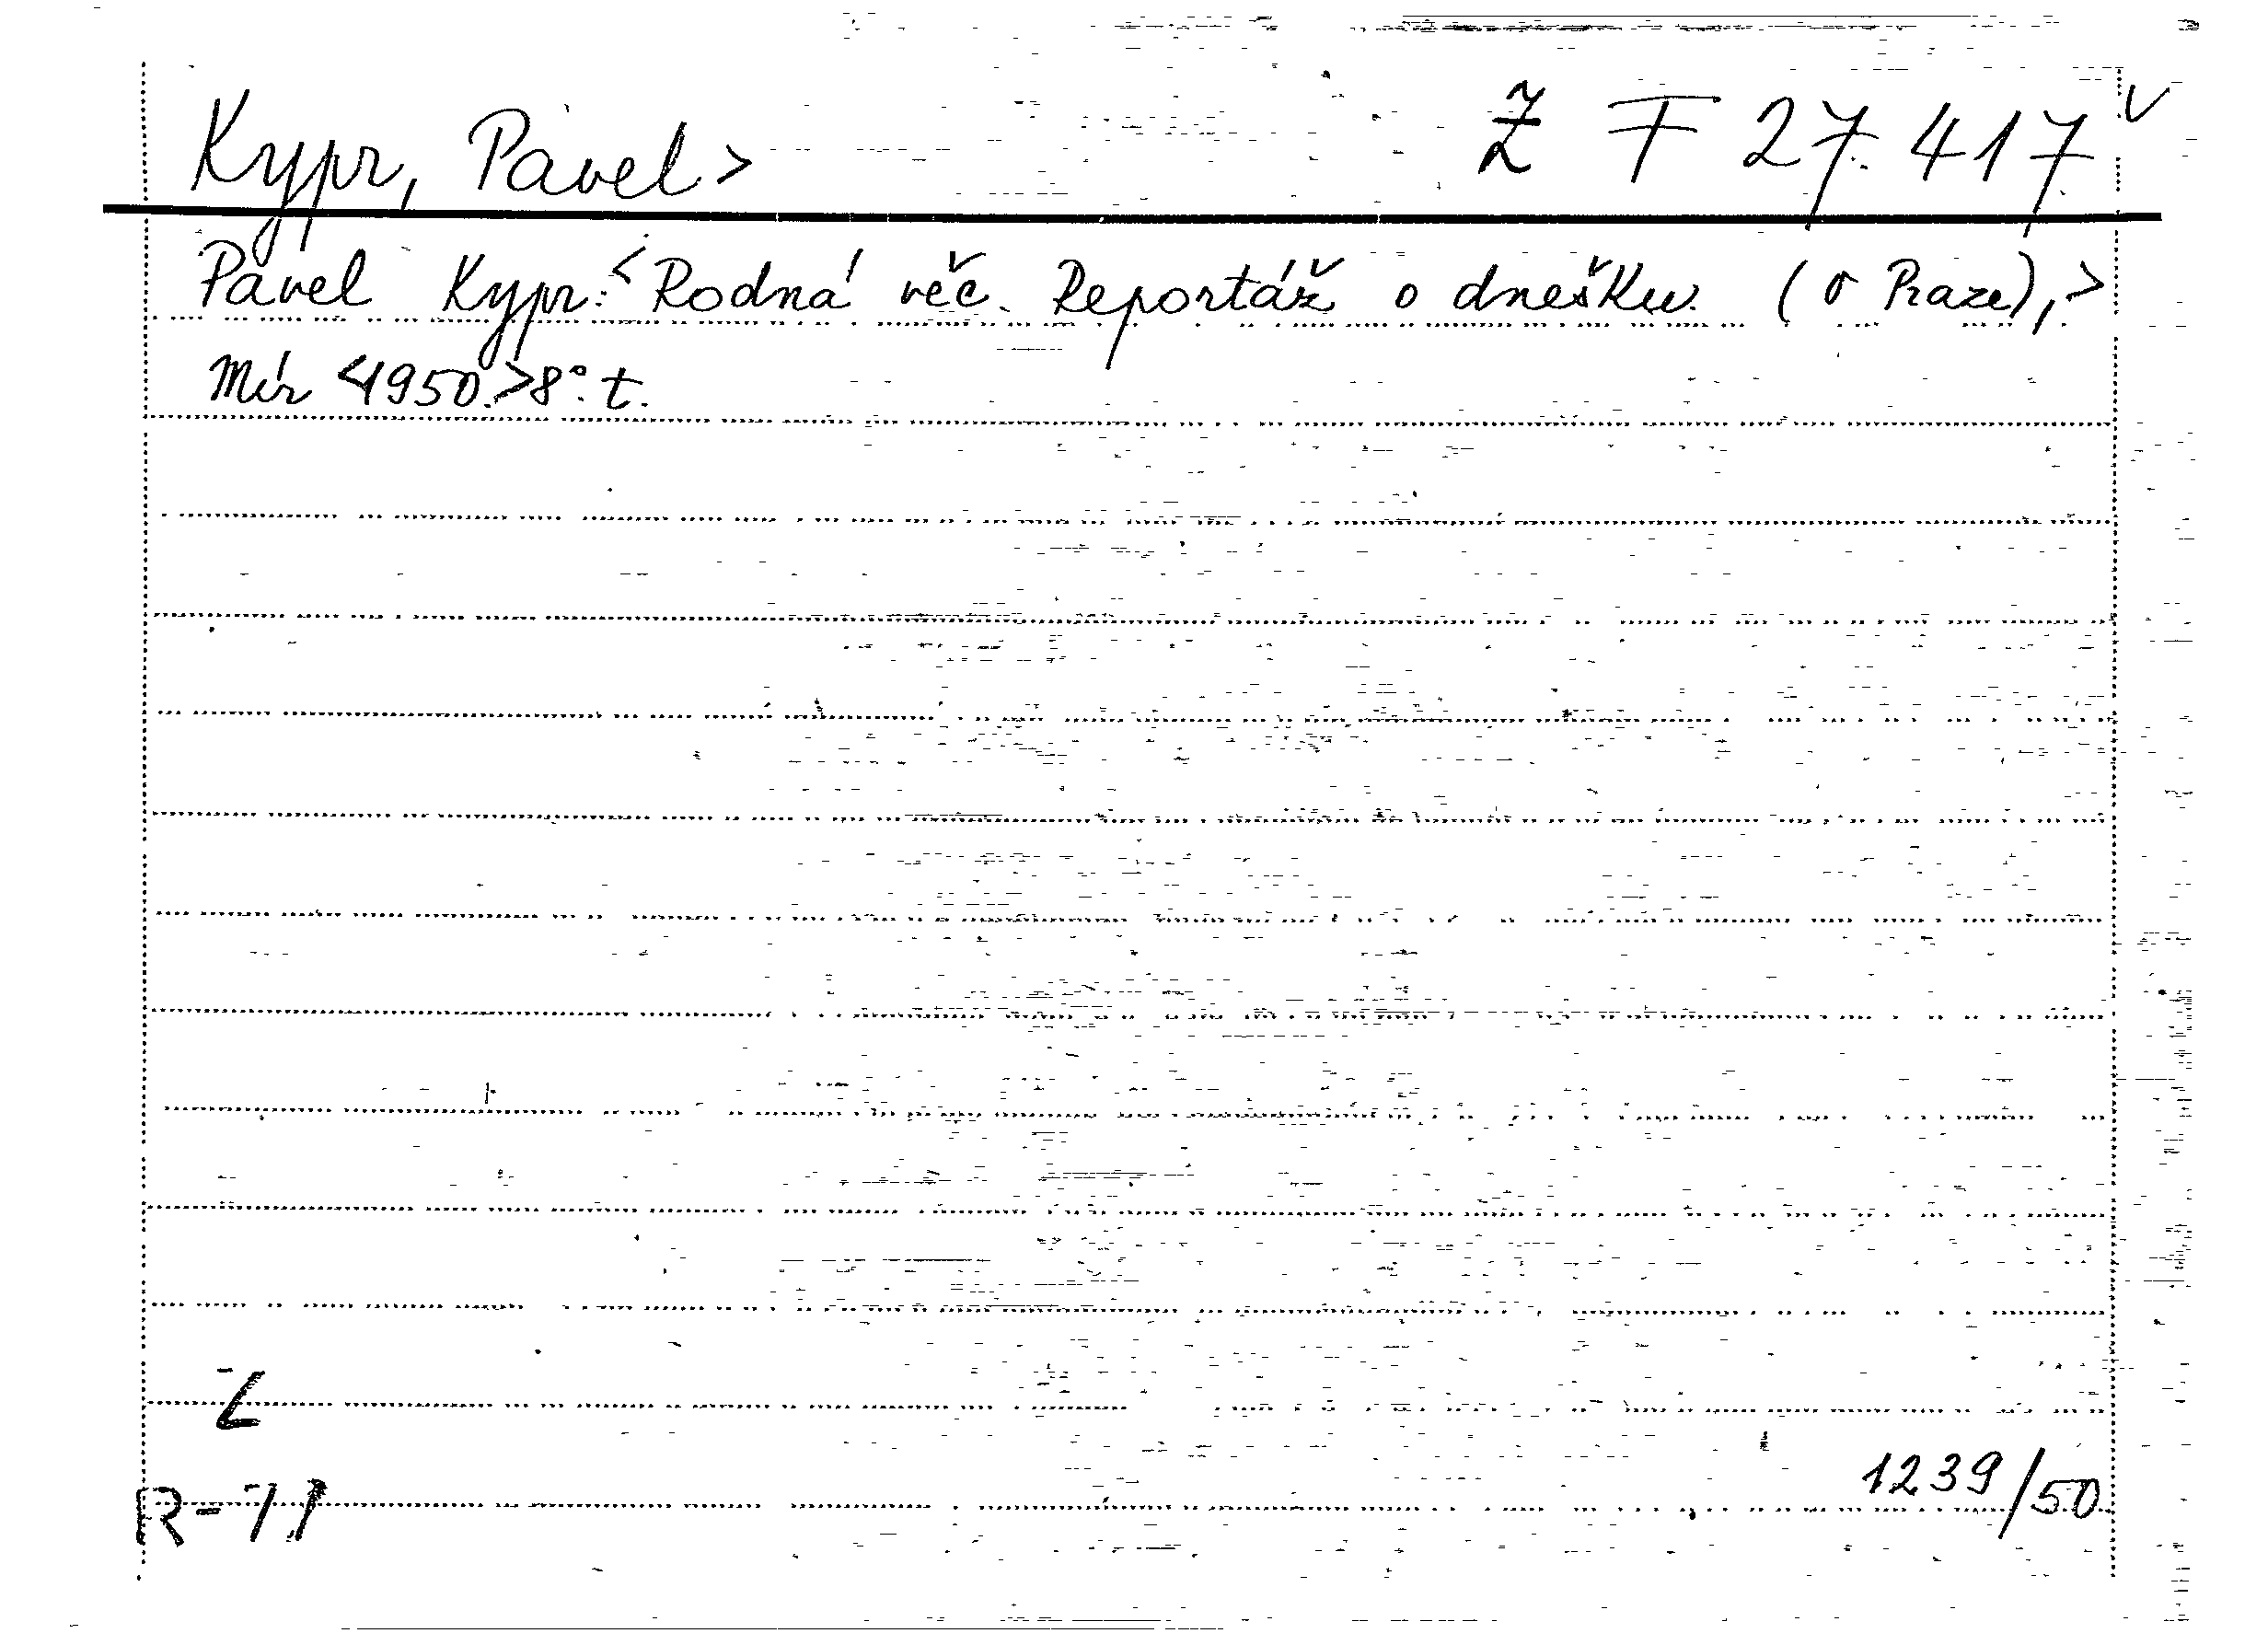 Kypr, Pavel > Z F 27.417 v
Pavel Kypr: < Rodná věc. Reportáž o dnešku. (o Praze), >
Mír <1950.> 8°. t.
Z
R-71 1239/50